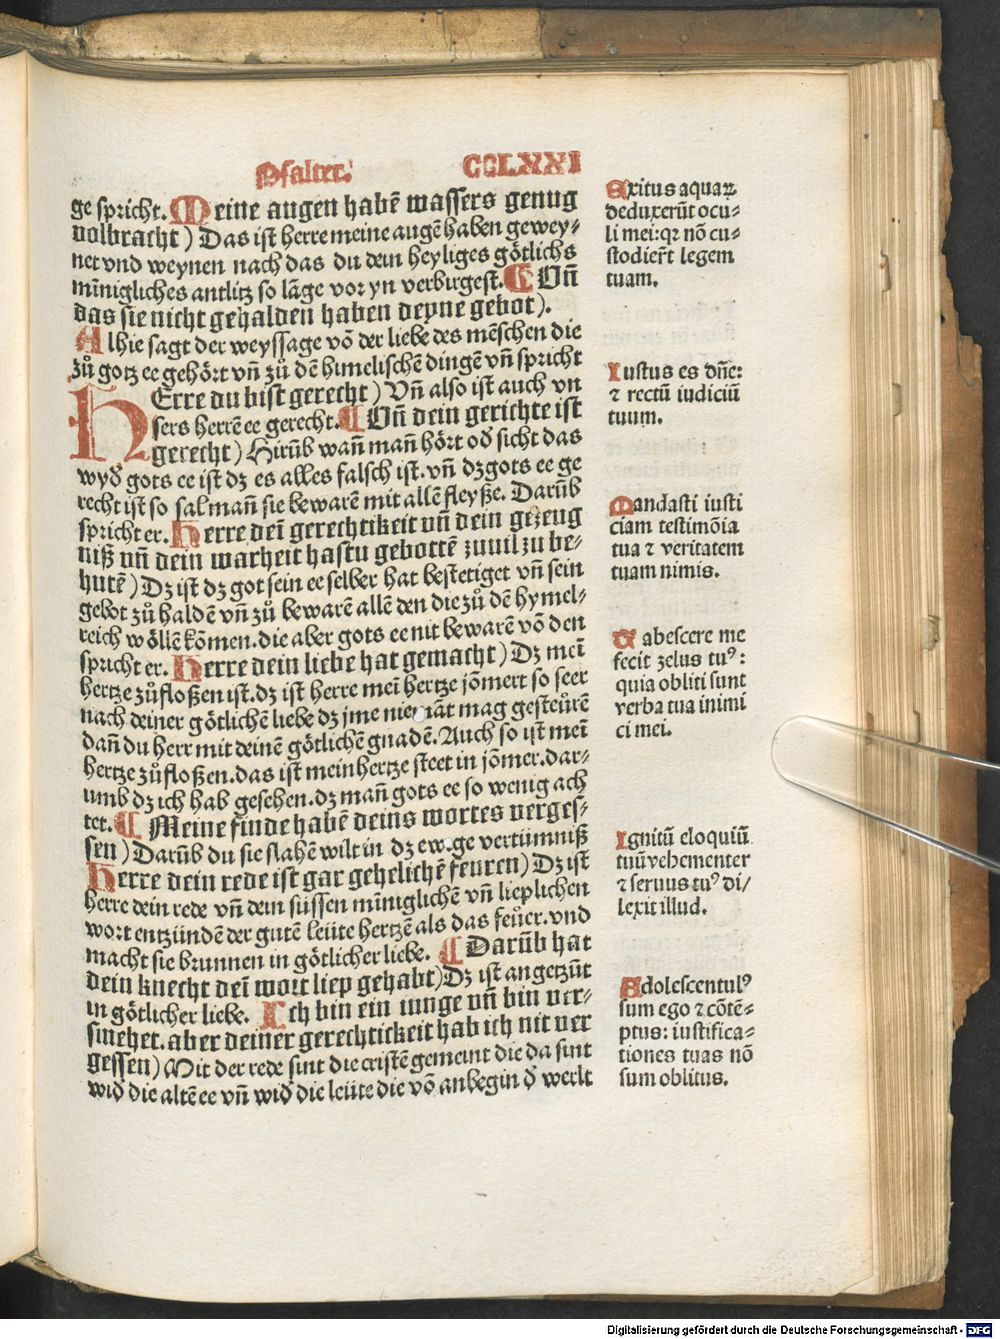 Psalter. CCLXXI
ge spricht. Meine augen habē wassers genug
volbracht) Das ist herre meine augē haben gewey⸗
net vnd weynen nach das du dein heyliges götlichs
mīnigliches antlitz so lāge vor yn verbirgest. ¶ Oñ
das sie nicht gehalden haben deyne gebot).
Alhie sagt der weyssage vō der liebe des mēschen die
zů gotz ee gehört vñ zů dē himelischē dingē vñ spricht
HErre du bist gerecht) Vñ also ist auch vn
sers herrē ee gerecht. ¶ Oñ dein gerichte ist
gerecht) Hirūb wañ mañ hört oď sicht das
wyď gots ee ist dz es alles falsch ist. vñ dz gots ee ge
recht ist so sal mañ sie bewarē mit allē fleyße. Darūb
spricht er. Herre deī gerechtikeit vñ dein gezeug
niß vñ dein warheit hastu gebottē zuuil zu be⸗
hutē) Dz ist dz got sein ee selber hat bestetiget vñ sein
gebot zů haldē vñ zů bewarē allē den die zů dē hymel⸗
reich wöllē kōmen. die aber gots ee nit bewarē vō den
spricht er. Herre dein liebe hat gemacht) Dz meī
hertze zůfloßen ist. dz ist herre meī hertze jōmert so seer
nach deiner götlichē liebe dz jme niemāt mag gesteůrē
dañ du herr mit deinē götlichē gnadē. Auch so ist meī
hertze zůfloßen. das ist mein hertze steet in jōmer. dar⸗
umb dz ich hab gesehen. dz mañ gots ee so wenig ach
tet. ¶ Meine finde habē deins wortes verges⸗
sen) Darūb du sie slahē wilt in dz ew. ge vertumniß
Herre dein rede ist gar gehelichē feuren) Dz ist
herre dein rede vñ dein süssen mīniglichē vñ lieplichen
wort entzündē der gutē leüte hertzē als das feůer. vnd
macht sie brunnen in götlicher liebe. ¶ Darūb hat
dein knecht deī wort liep gehabt) Dz ist angetzūt
in götlicher liebe. Ich bin ein iunge vñ bin ver⸗
smehet. aber deiner gerechtickeit hab ich nit ver
gessen) Mit der rede sint die cristē gemeint die da sint
wiď die altē ee vñ wiď die leüte die vō anbegin ď werlt
Exitus aquaꝝ
deduxerūt ocu⸗
li mei: qꝛ nō cu⸗
stodierūt legem
tuam.
Iustus es dñe:
⁊ rectū iudiciū
tuum.
Mandasti iusti
ciam testimōia
tua ⁊ veritatem
tuam nimis.
Tabescere me
fecit zelus tuꝰ:
quia obliti sunt
verba tua inimi
ci mei.
Ignitū eloquiū
tuū vehementer
⁊ seruus tuꝰ di⸗
lexit illud.
Adolescentulꝰ
sum ego ⁊ cōtē⸗
ptus: iustifica⸗
tiones tuas nō
sum oblitus.
Digitalisierung gefördert durch die Deutsche Forschungsgemeinschaft - DFG